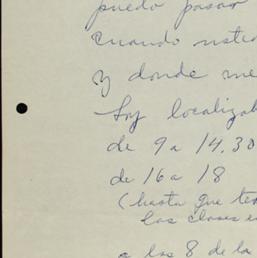 puedo pasar
cuando uste
y donde me
Soy localizab
de 9 a 14.30
de 16 a 18
(hasta que te
las clases e
a las 8 de la